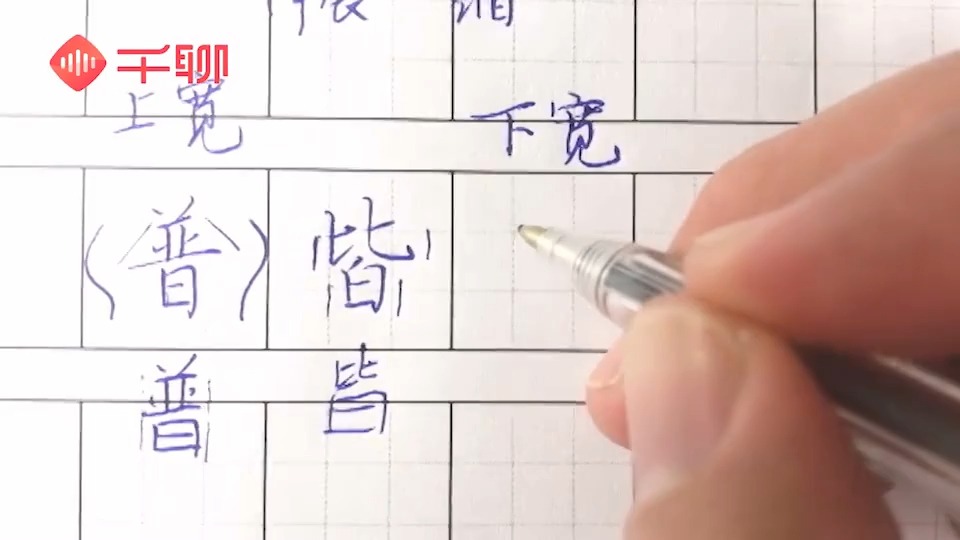 千聊
上宽 下宽
普 皆
普 皆